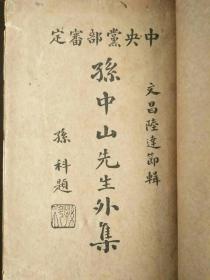 定審部黨央中
文昌陸達節輯
孫中山先生外集
孫科題